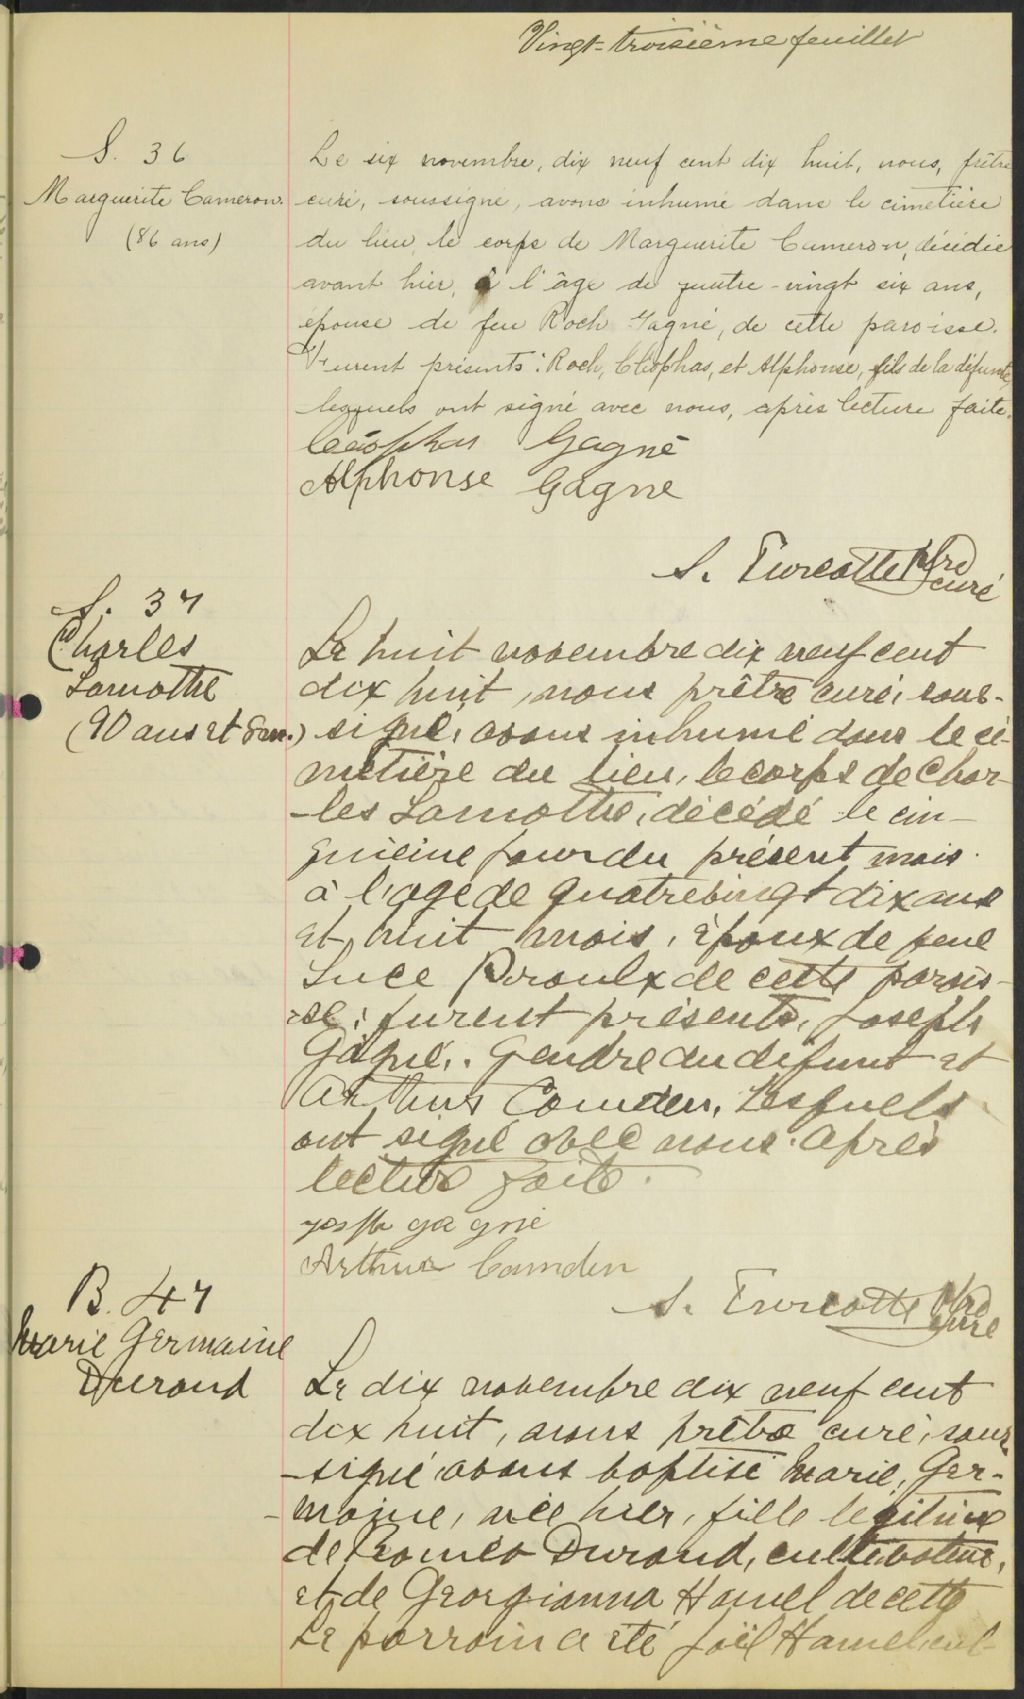 Vingt-troisième feuillet
S. 36
Marguerite Cameron.
(86 ans)
Le six novembre, dix neuf cent dix huit, nous, prêtre
curé, soussigné, avons inhumé dans le cimetière
du lieu, le corps de Marguerite Cameron, décédée
avant hier, à l'âge de quatre-vingt six ans,
épouse de feu Roch Gagné, de cette paroisse.
Furent présents: Roch, Cléophas, et Alphonse, fils de la défunte,
lesquels ont signé avec nous, après lecture faite.
Cléophas Gagné
Alphonse Gagne
S. Turcotte ptre
curé
S. 37
Charles
Lamothe
(90 ans et 8 m.)
Le huit novembre dix neuf cent
dix huit, nous prêtre curé, sous-
signé, avons inhumé dans le ci-
metière du lieu, le corps de Char-
-les Lamothe, décédé le cin-
quième jour du présent mois.
à l'age de quatre vingt dix ans
et huit mois, époux de feue
Luce Proulx de cette parois-
-se; furent présents, Joseph
Gagné, gendre du défunt et
Arthur Camden, lesquels
ont signé avec nous. après
lecture faite.
joseph gagné
Arthur Camden
S. Turcotte ptre
curé
B. 47
Marie Germaine
Durand
Le dix novembre dix neuf cent
dix huit, nous prêtre curé, sous
-signé, avons baptisé Marie, Ger-
-maine, née hier, fille légitime
de Roméo Durand, cultivateur,
et de Georgianna Hamel de cette
Le parrain a été Joël Hamel, cul-